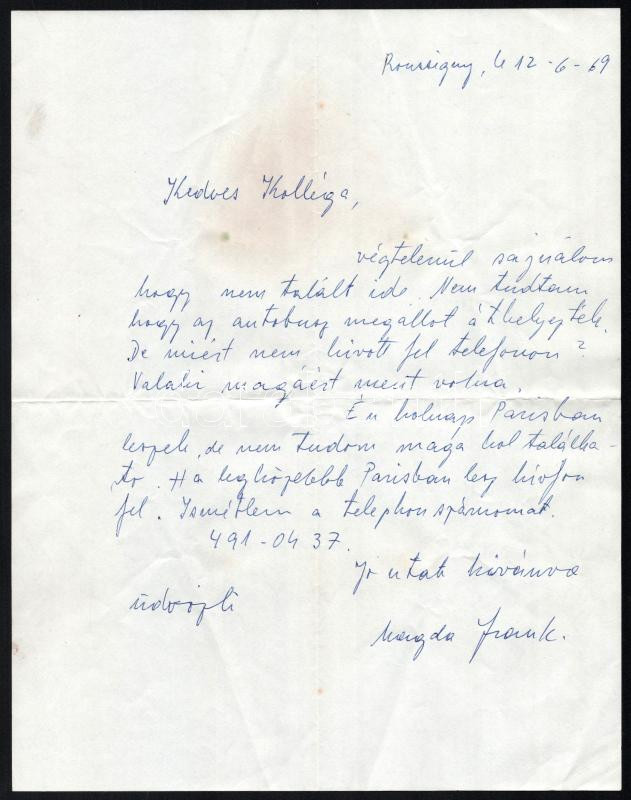 Roussigny, le 12-6-69
Kedves Kolléga,
végtelenül sajnálom
hogy nem talált ide. Nem tudtam
hogy az autobusz megállot áthelyezték.
De miért nem hivott fel telefonon?
Valaki magáért ment volna.
Én holnap Párisban
leszek, de nem tudom maga hol találha-
tó. Ha legközelebb Párisban lesz hivjon
fel. Ismétlem a telephon számomat.
491-04 37.
Jó utat kivánva
üdvözli
Magda Frank.